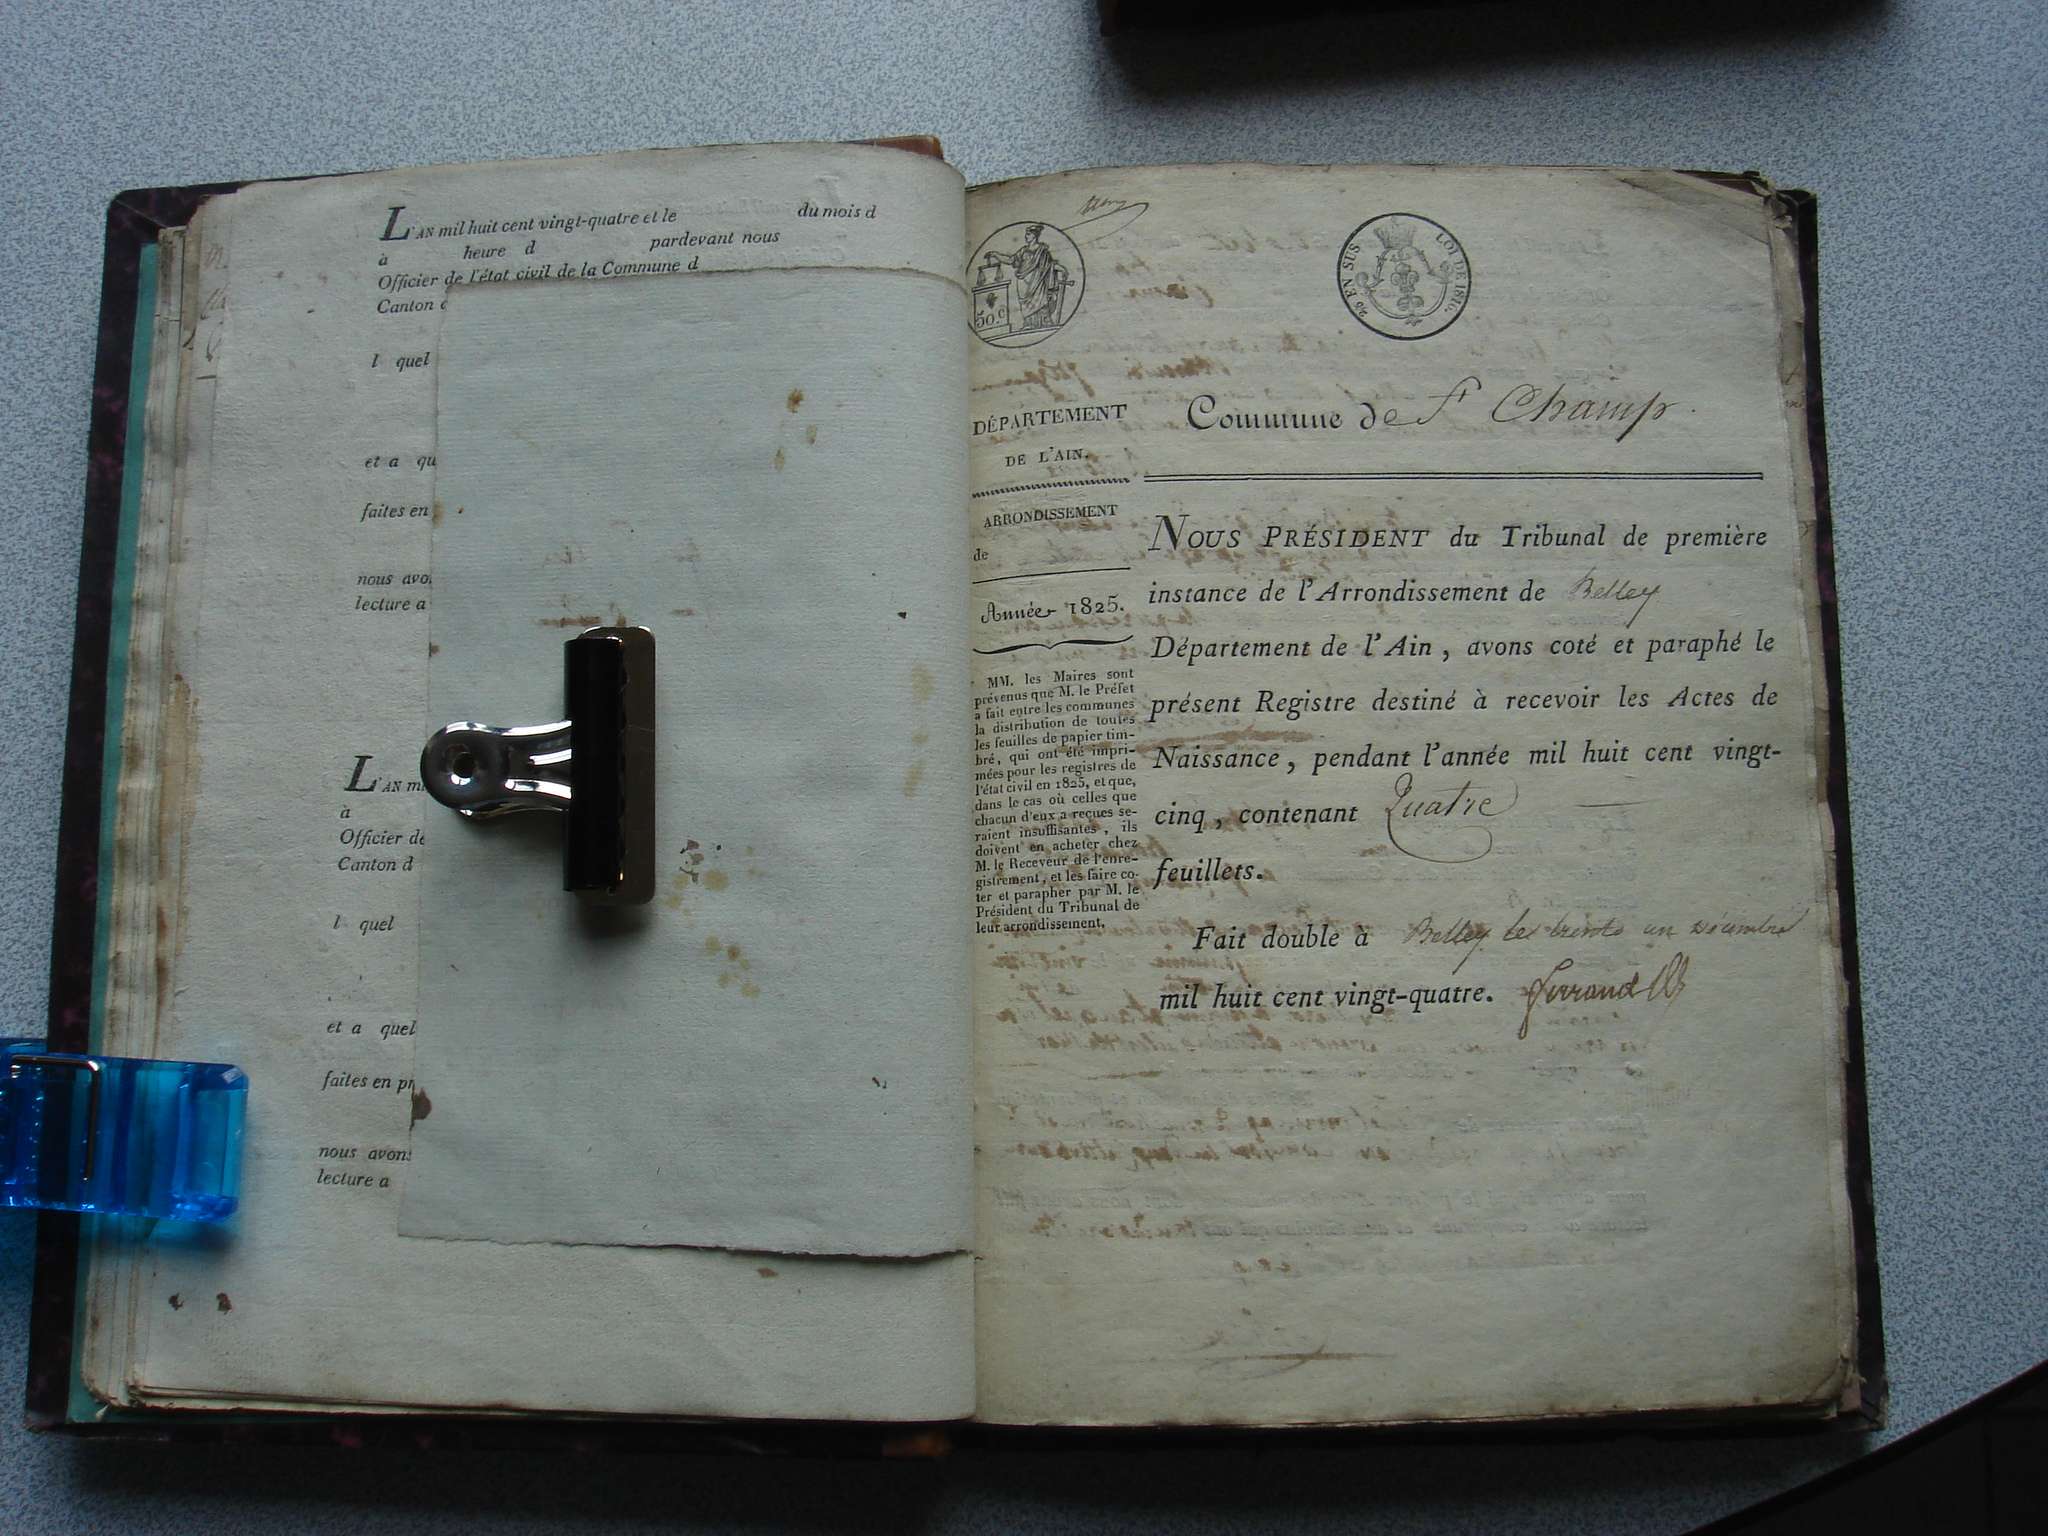 L'AN mil huit cent vingt-quatre et le du mois d
à heure d pardevant nous
Officier de l'état civil de la Commune d
Canton
l quel
et a qu
faites en
nous avo
lecture a
L'AN mi
à
Officier de
Canton d
l quel
et a quel
faites en pr
nous avons
lecture a
50.c
25 EN SUS LOI DE 1816.
DÉPARTEMENT
DE L'AIN.
ARRONDISSEMENT
de
Année 1825.
MM. les Maires sont
prévenus que M. le Préfet
a fait entre les communes
la distribution de toutes
les feuilles de papier tim-
bré, qui ont été impri-
mées pour les registres de
l'état civil en 1825, et que,
dans le cas où celles que
chacun d'eux a reçues se-
raient insuffisantes, ils
doivent en acheter chez
M. le Receveur de l'enre-
gistrement, et les faire co-
ter et parapher par M. le
Président du Tribunal de
leur arrondissement.
Commune de St Champ
NOUS PRÉSIDENT du Tribunal de première
instance de l'Arrondissement de Belley
Département de l'Ain, avons coté et paraphé le
présent Registre destiné à recevoir les Actes de
Naissance, pendant l'année mil huit cent vingt-
cinq, contenant Quatre
feuillets.
Fait double à Belley le trente un décembre
mil huit cent vingt-quatre. Ferrand